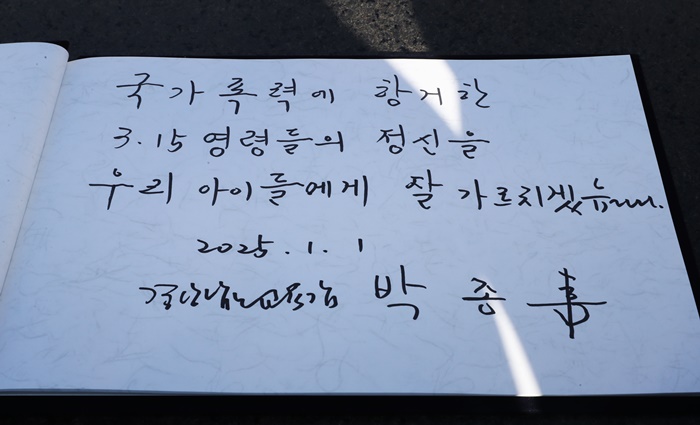 국가폭력에 항거한
3.15 영령들의 정신을
우리 아이들에게 잘 가르치겠습니다.
2025. 1. 1
경상남도교육감 박종훈